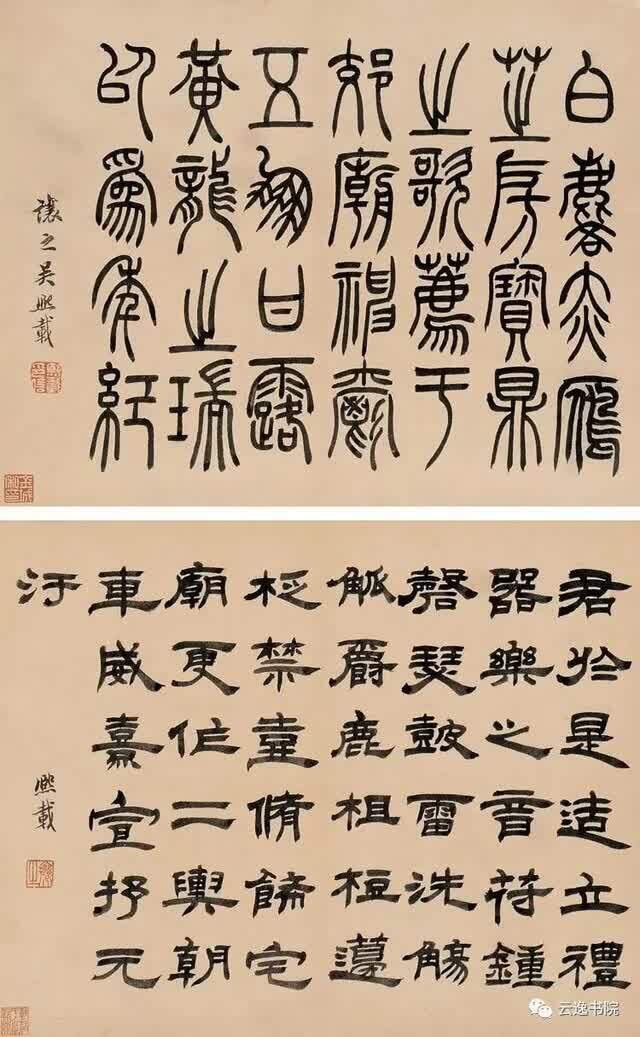 白麐赤鴈
芝房寶鼎
之歌薦于
郊廟神爵
五鳳甘露
黃龍之瑞
以為年紀
讓之吳熙載
君於是造立禮
器樂之音符鍾
磬瑟鼓雷洗觴
觚爵鹿柤梪籩
柉禁壺脩飾宅
廟更作二輿朝
車威熹宣抒元
汙
熙載
云逸书院